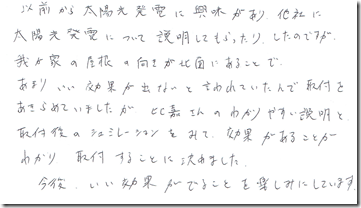 以前から太陽光発電に興味があり、他社に
太陽光発電について説明してもらったり、したのですが、
我が家の屋根の向きが北面にあることで、
あまりいい効果が出ないと言われていたんで取付を
あきらめていましたが ヒピ嘉さんのわかりやすい説明と
取付後のシュミレーションをみて、効果があることが
わかり、取付することに決めました。
今後、いい効果がでることを楽しみにしています。